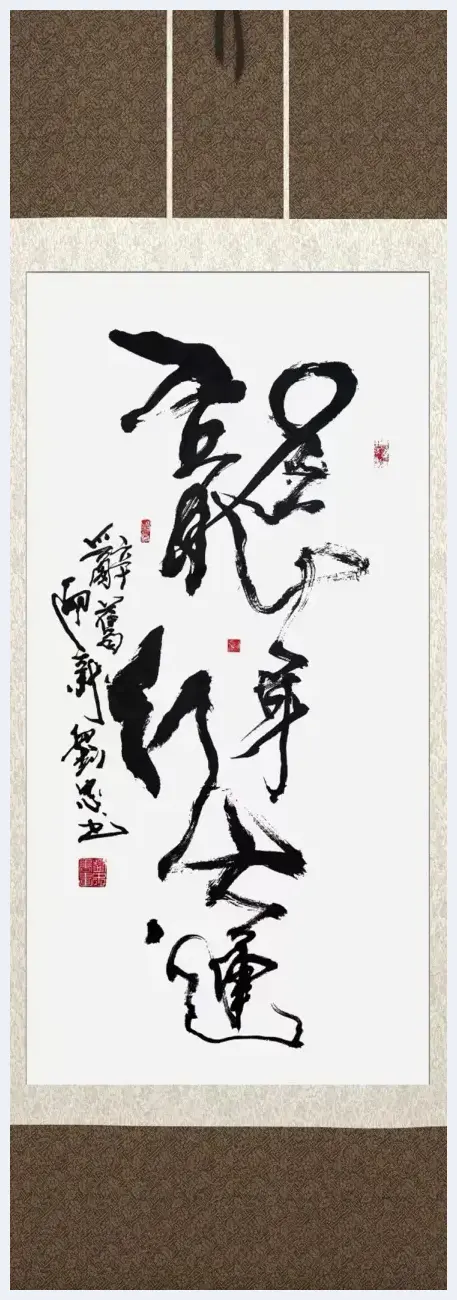 龍年行大運
辭舊迎新 劉忠書